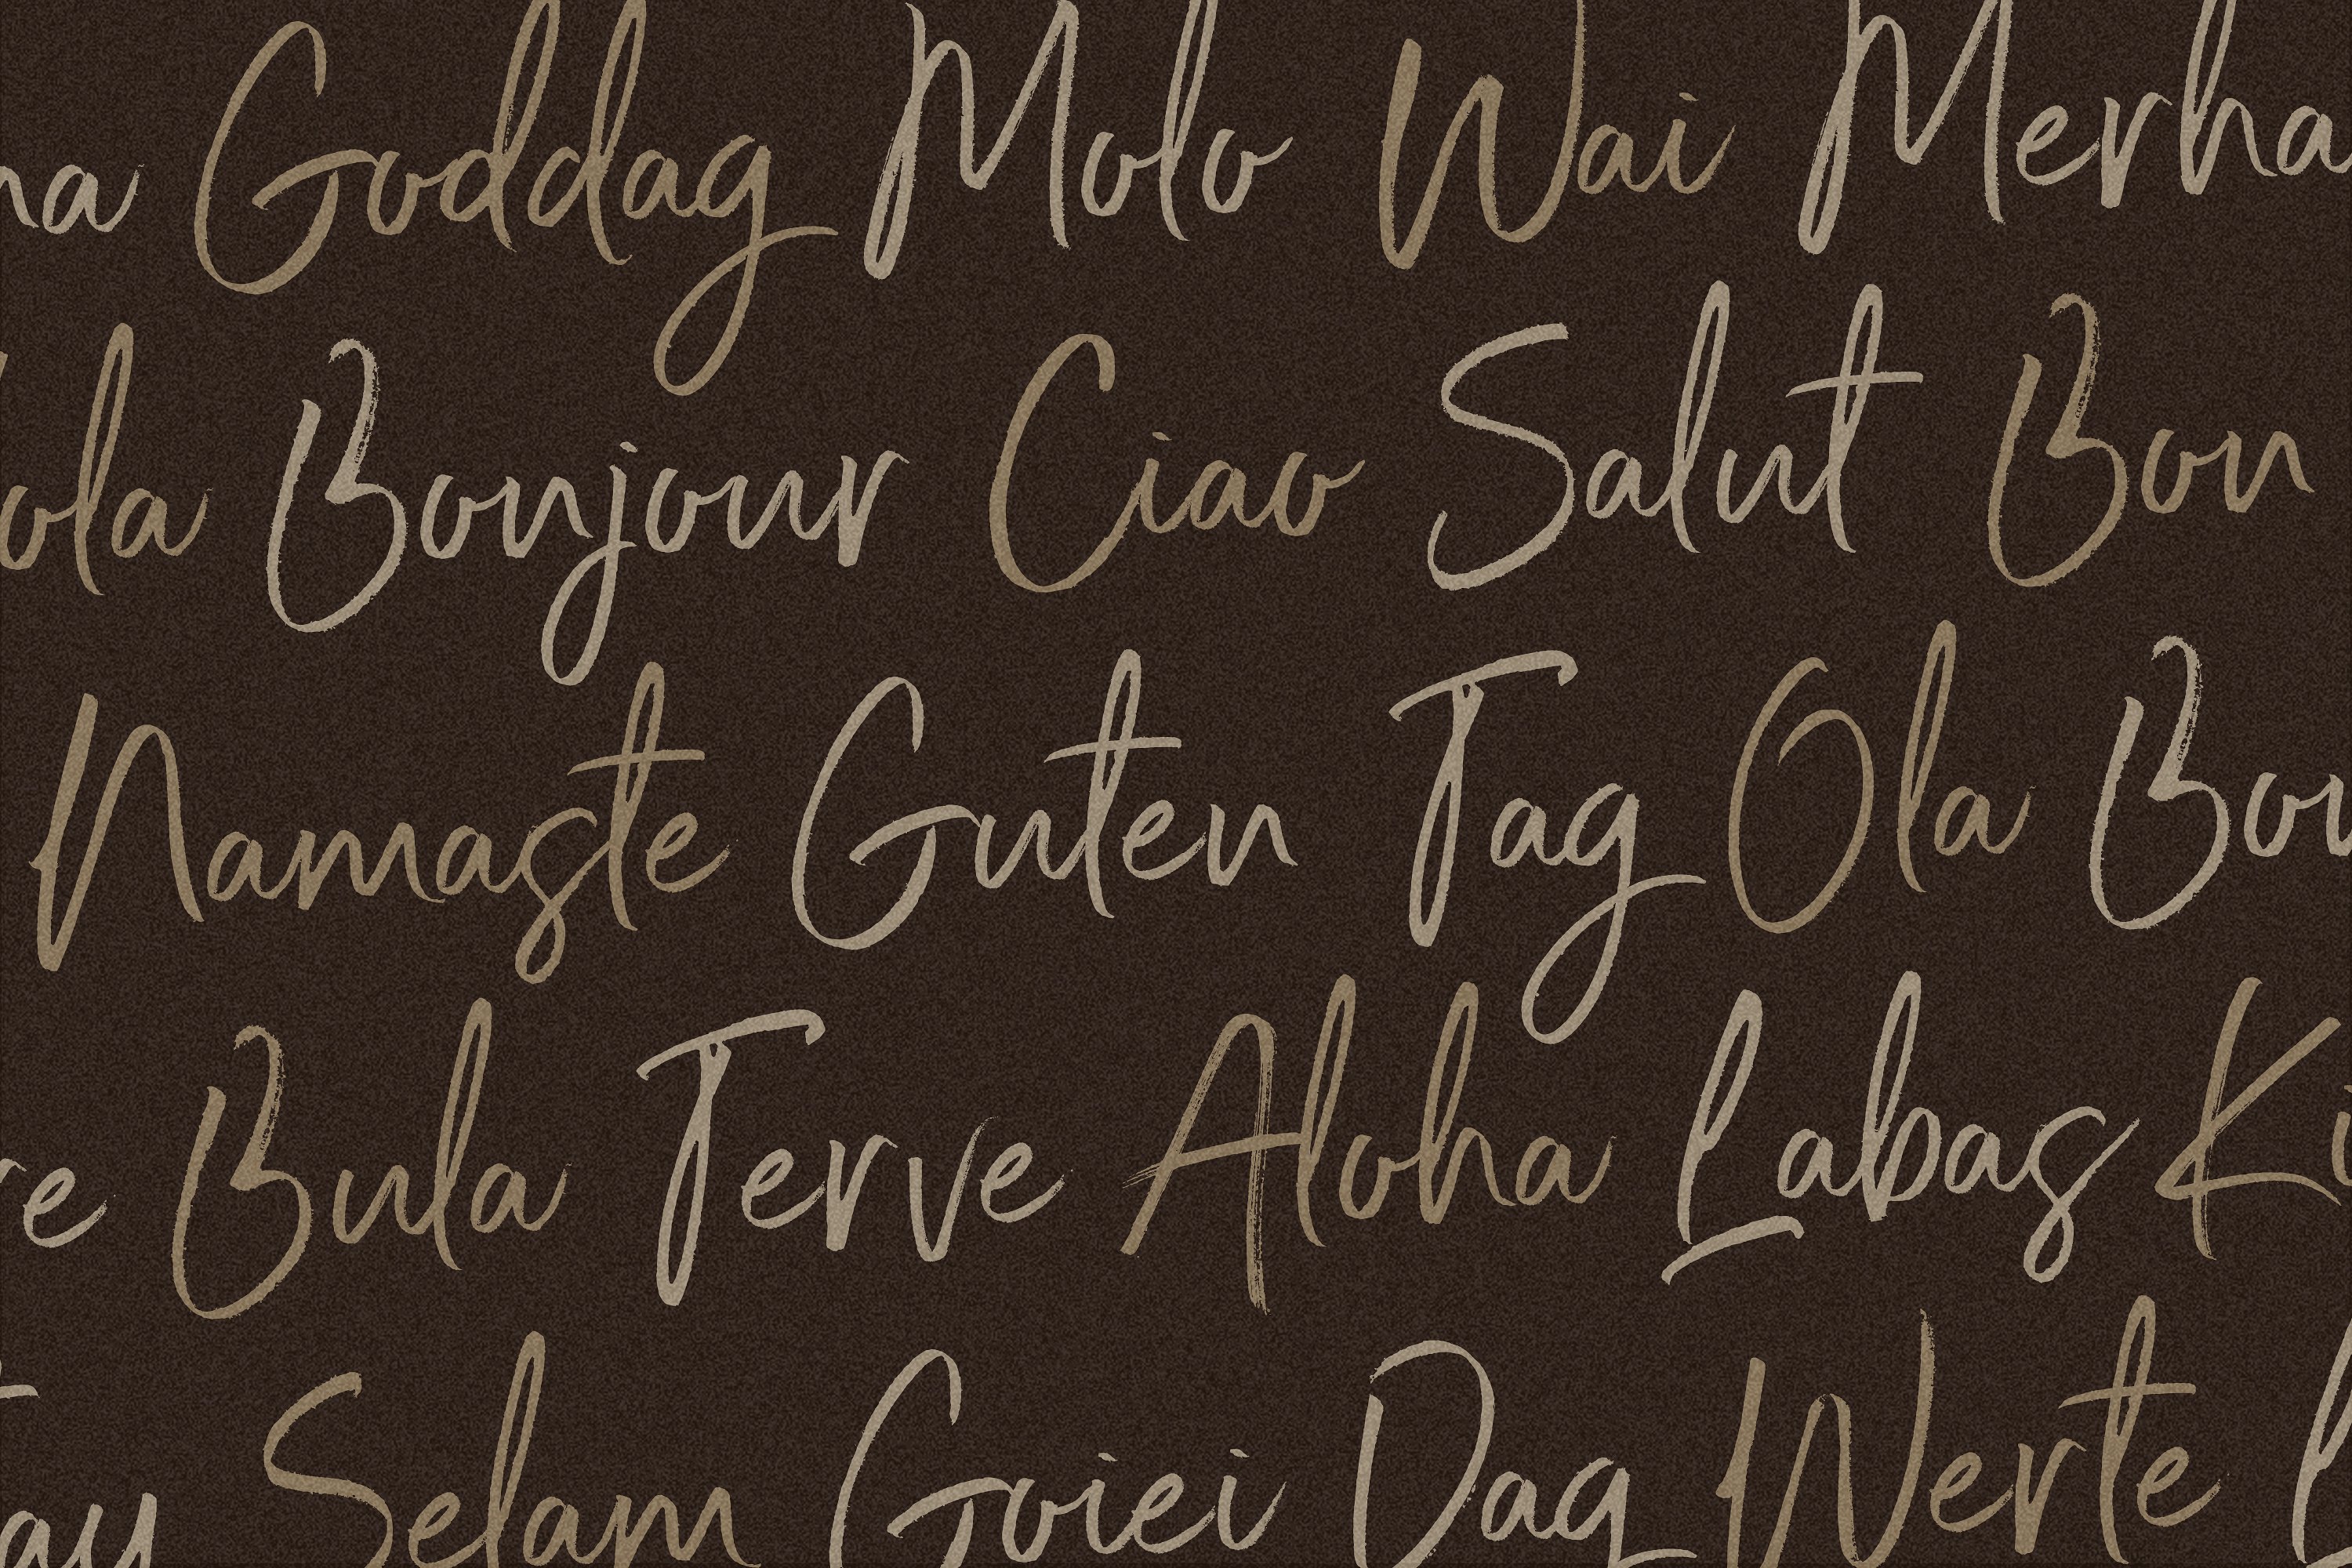 na Goddag Molo Wai Merha
ola Bonjour Ciao Salut Bon
Namaste Guten Tag Ola Bon
re Bula Terve Aloha Labas Ki
ay Selam Goiei Dag Werte